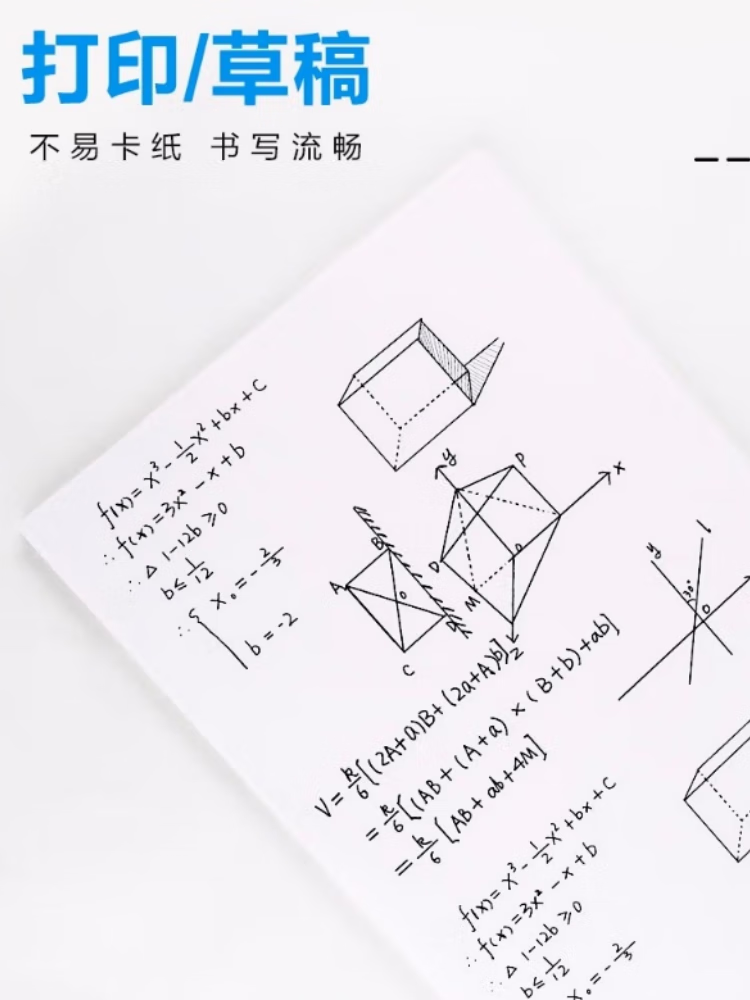 打印/草稿
不易卡纸 书写流畅
f(x)=x³-½x²+bx+C
∴f(x)=3x²-x+b
∴△1-12b≥0
b≤1/12
∴{x₀=-2/3
b=-2
y
P
x
D
M
O
Z
B
A
O
D
C
y
l
30°
O
V=k/6[(2A+a)B+(2a+A)b]
=k/6[(AB+(A+a)×(B+b)+ab]
=k/6[AB+ab+4M]
f(x)=x³-½x²+bx+C
∴f(x)=3x²-x+b
∴△1-12b≥0
b≤1/12
x₀=-2/3